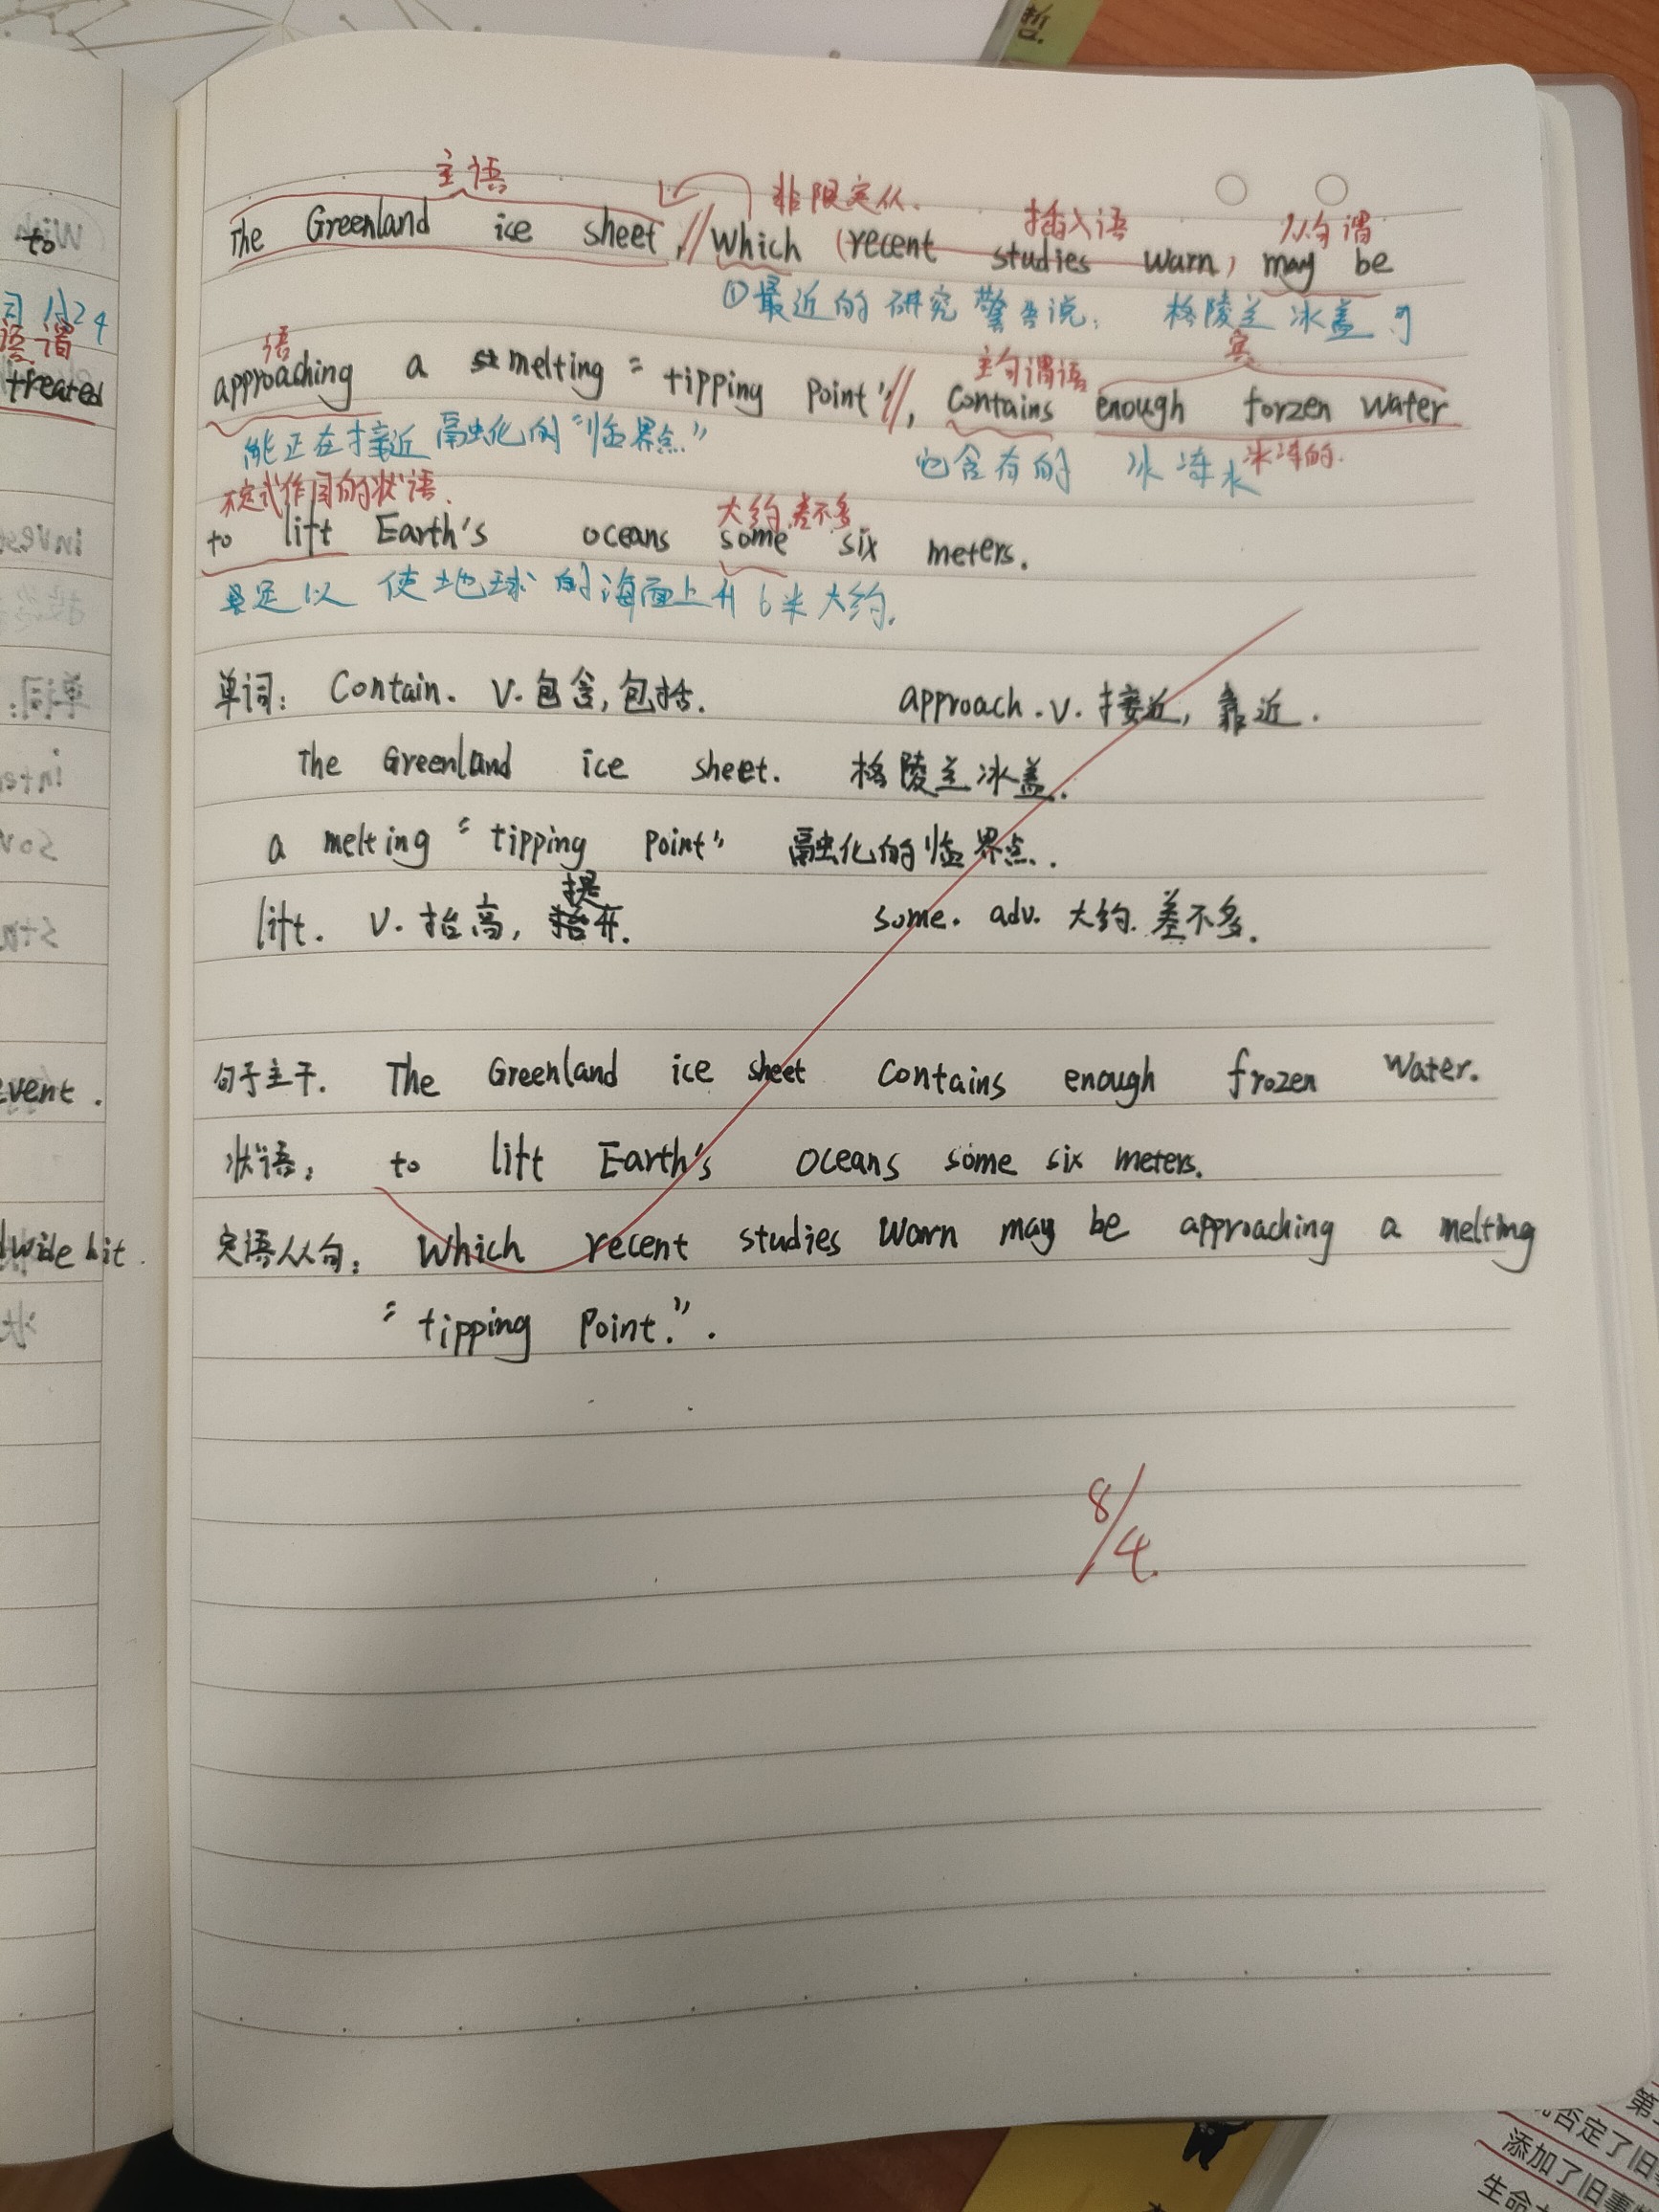 哲.
主语
非限定从.
插入语
从句谓
The Greenland ice sheet,// which (recent studies warn) may be
①最近的研究警告说, 格陵兰冰盖可
语
主句谓语
宾
approaching a melting "tipping point"//, contains enough forzen water
能正在接近融化的"临界点"
它含有的 冰冻水
冰冻的.
不定式作目的状语.
大约.差不多
to lift Earth's oceans some six meters.
足以 使地球的海面上升6米大约.
单词: Contain. v. 包含, 包括. approach. v. 接近, 靠近.
The Greenland ice sheet. 格陵兰冰盖.
a melting "tipping point" 融化的临界点.
提
lift. v. 抬高, 升. some. adv. 大约. 差不多.
句子主干. The Greenland ice sheet contains enough frozen water.
状语: to lift Earth's oceans some six meters.
定语从句: which recent studies warn may be approaching a melting
"tipping point.".
8/4.
to
语 谓
treated
event.
wide hit.
第
否定了旧事
添加了旧事物
生命